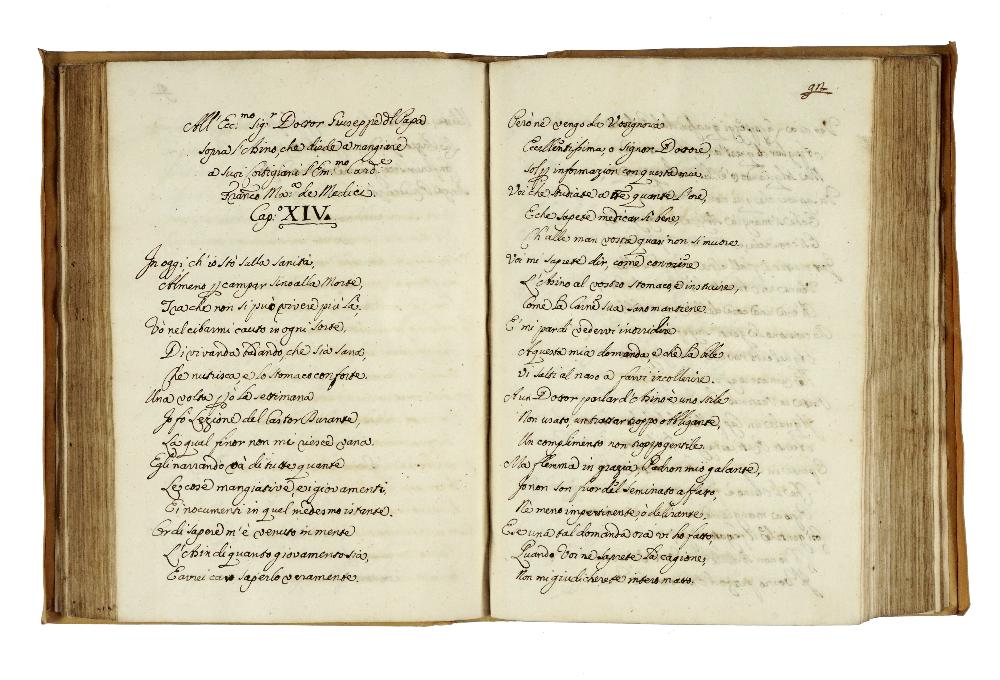 All' Ecc.mo Sig.r Dottor Giuseppe del Papa
sopra l'Asino, che diede a mangiare
a suoi Cortigiani l'Em.mo Card.e
Franco Mar.a de Medici.
Cap.o XIV.
In oggi, ch'io stò sulla sanità,
Almeno p campar sino alla Morte,
Già che non si può vivere più là,
Vò nel cibarmi cauto in ogni sorte,
Di vivanda badando, che sia sana
Che nutrisca e lo stomaco conforte.
Una volta p lo la settimana
Io fò Lezione del Castor Durante,
La qual finor non mi riesce vana.
Egli narrando và di tutte quante
Le cose mangiative, e i giovamenti,
E i nocumenti in quel medesmo istante.
Or di sapere m'è venuto in mente
L'Asin di quanto giovamento sia,
E avrei caro saperlo veramente.
92
Però ne vengo da Vosignoria
Eccellentissima, o Signor Dottore,
sol p informazion con questa mia.
Voi che studiate a tutte quante l'ore,
E che sapete medicar sì bene,
Ch'alle man vostre quasi non si muore
Voi mi sapete dir, come conviene
L'Asino al vostro stomaco e instruire,
Come la Carne sua sano mantiene.
E' mi par di vedervi inorridire
A questa mia domanda, e che la bile
Vi salti al naso a farvi incollerire.
A un Dottor parlar d'Asino è uno stile
Non usato, un trattar troppo obbligante,
Un complimento non troppo gentile.
Ma flemma in grazia Padron mio galante,
Io non son fuor del seminato affatto,
Nè meno impertinente, ò delirante,
E se una tal domanda ora vi ho fatto,
Quando Voi ne saprete la cagione,
Non mi giudicherete intero matto.